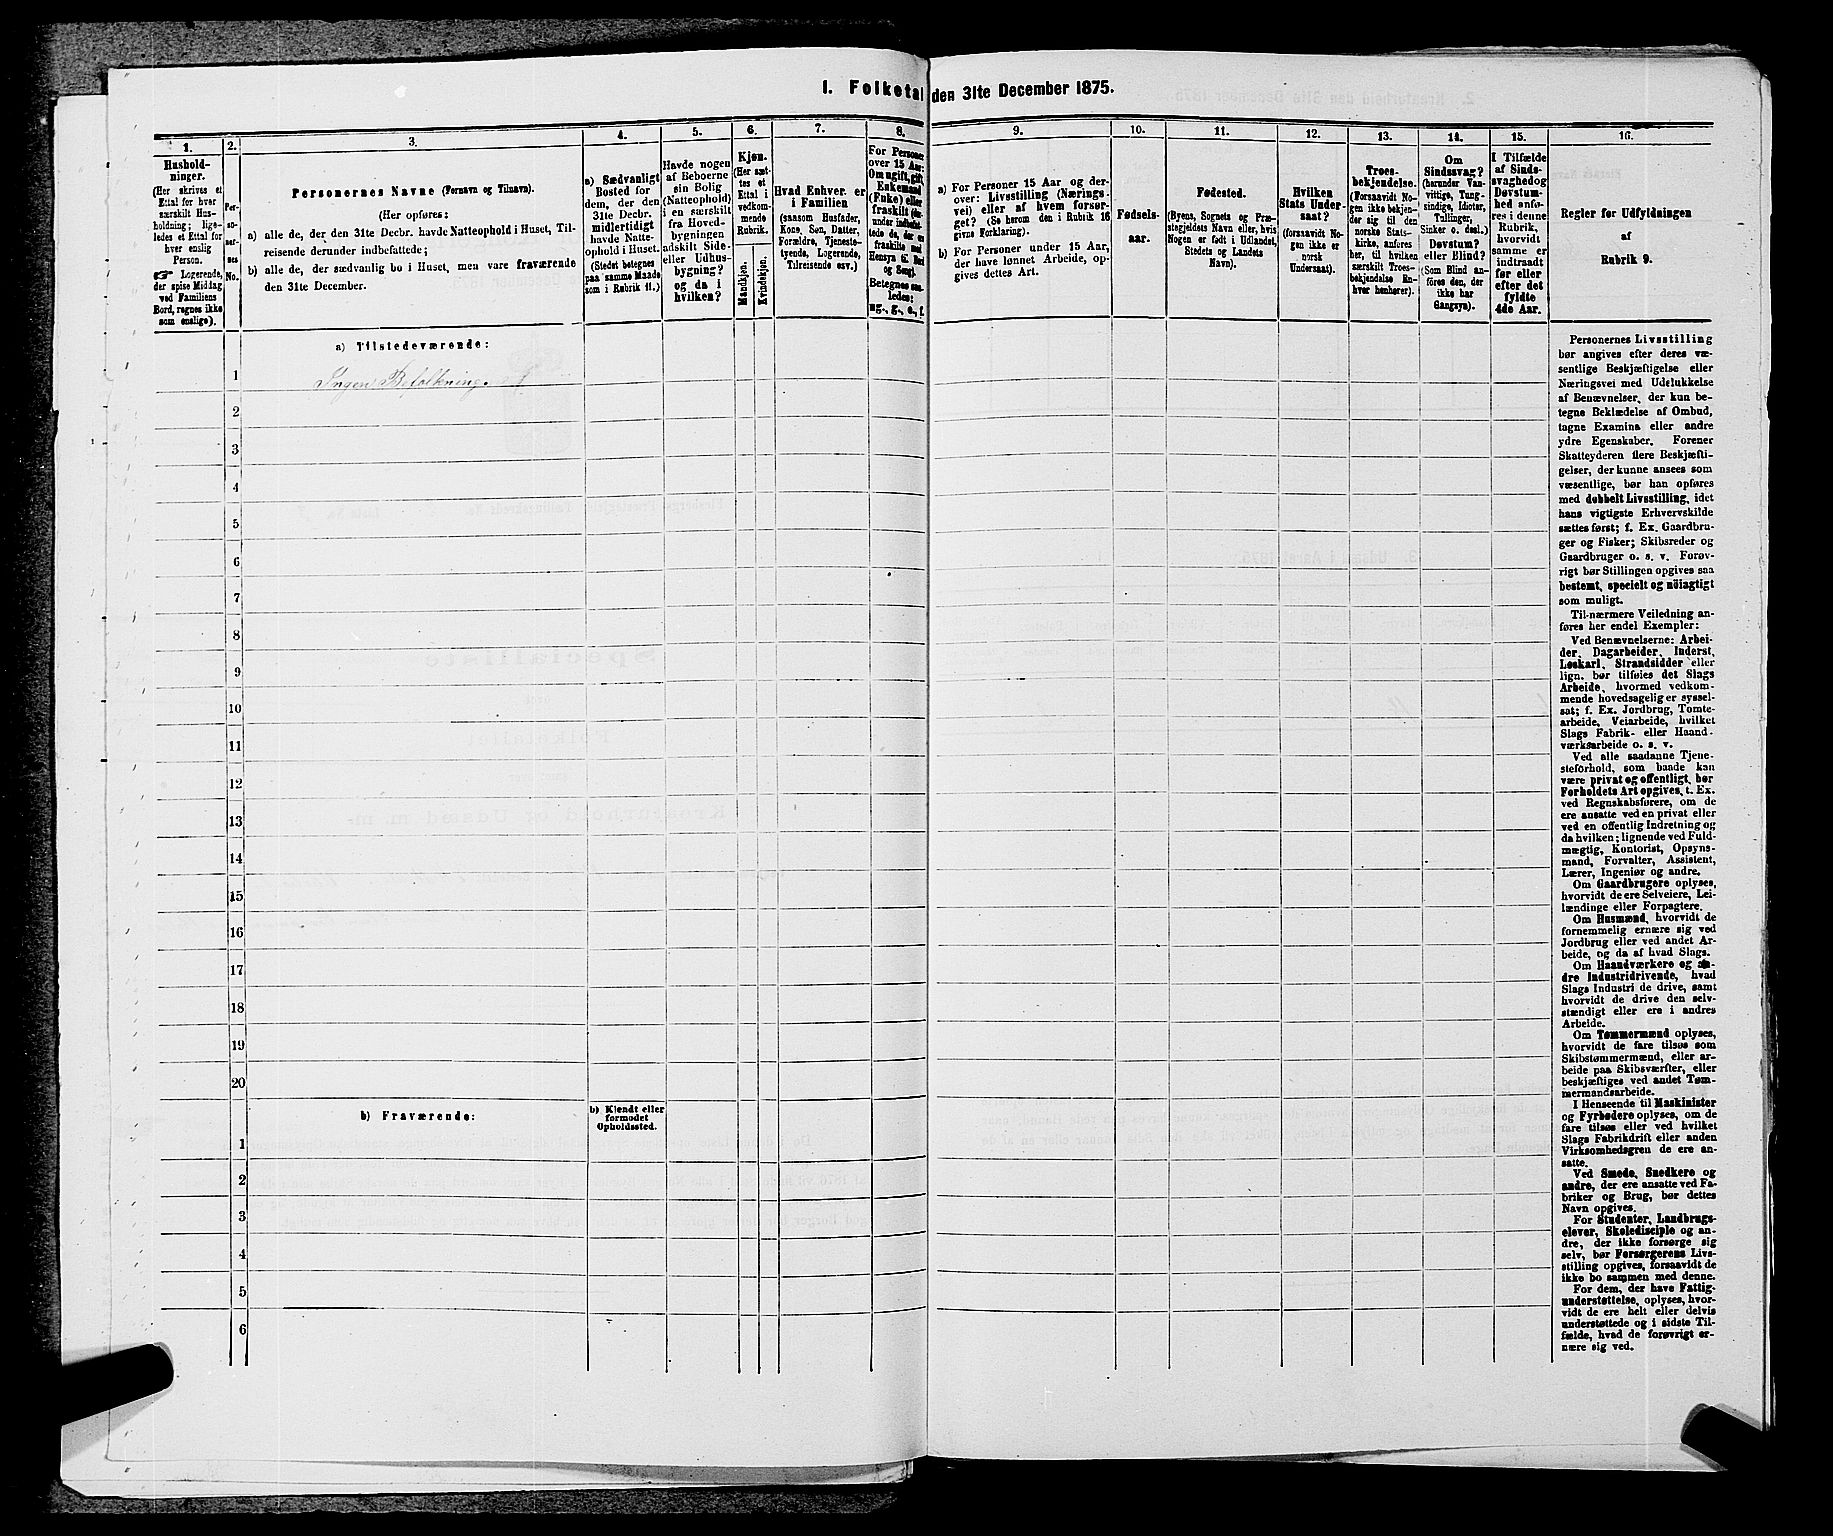 1. Folketal den 31te December 1875.
1.
Hushold-
ninger.
(Her skrives et
Ettal for hver
særskilt Hus-
holdning; lige-
ledes et Ettal for
hver enslig
Person.
☞ Logerende,
der spise Middag
ved Familiens
Bord, regnes ikke
som enslige).
2.
Per-
so-
ner-
nes
No.
3.
Personernes Navne (Fornavn og Tilnavn).
(Her opføres:
a) alle de, der den 31te Decbr. havde Natteophold i Huset, Til-
reisende derunder indbefattede;
b) alle de, der sædvanlig bo i Huset, men vare fraværende
den 31te December.
4.
a) Sædvanligt
Bosted for
dem, der den
31te Decbr.
midlertidigt
havde Natte-
ophold i Huset.
(Stedet betegnes
paa samme Maade
som i Rubrik 11.)
5.
Havde nogen
af Beboerne
sin Bolig
(Natteophold)
i en særskilt
fra Hoved-
bygningen
adskilt Side-
eller Udhus-
bygning?
og da i
hvilken?
6.
Kjøn.
(Her sæt-
tes et
Ettal i
vedkom-
mende
Rubrik.
Mandkjøn.
Kvindekjøn.
7.
Hvad Enhver er
i Familien
(saasom Husfader,
Kone, Søn, Datter,
Forældre, Tjeneste-
tyende, Logerende,
Tilreisende osv.)
8.
For Personer
over 15 Aar:
Om ugift, gift,
Enkemand
(Enke) eller
fraskilt (der-
under indbefat-
tede de, der ere
fraskilte med
Hensyn til Bord
og Seng).
Betegnes saa-
ledes:
ug., g., e., f.
9.
a) For Personer 15 Aar og der-
over: Livsstilling (Nærings-
vei) eller af hvem forsør-
get? (Se herom den i Rubrik 16
givne Forklaring).
b) For Personer under 15 Aar,
der have lønnet Arbeide, op-
gives dettes Art.
10.
Fødsels-
aar.
11.
Fødested.
(Byens, Sognets og Præ-
stegjeldets Navn eller, hvis
Nogen er født i Udlandet,
Stedets og Landets
Navn).
12.
Hvilken
Stats Under-
saat?
(forsaavidt No-
gen ikke er
norsk
Undersaat).
13.
Troes-
bekjendelse.
(Forsaavidt No-
gen ikke bekjen-
der sig til den
norske Stats-
kirke, anføres
her, til hvilken
særskilt Troes-
bekjendelse En-
hver henhører).
14.
Om
Sindssvag?
(herunder Van-
vittige, Tung-
sindige, Idioter,
Tullinger,
Sinker o. desl.)
Døvstum?
eller Blind?
(Som Blind an-
føres den, der
ikke har
Gangsyn).
15.
I Tilfælde
af Sinds-
svaghed og
Døvstum-
hed anfø-
res i denne
Rubrik,
hvorvidt
samme er
indtraadt
før eller
efter det
fyldte
4de Aar.
16.
Regler for Udfyldningen
af
Rubrik 9.
a) Tilstedeværende:
1 Ingen Befolkning.
2
3
4
5
6
7
8
9
10
11
12
13
14
15
16
17
18
19
20
b) Fraværende:
b) Kjendt eller
formodet
Opholdssted.
1
2
3
4
5
6
Personernes Livsstilling
bør angives efter deres væ-
sentlige Beskjæftigelse eller
Næringsvei med Udelukkelse
af Benævnelser, der kun be-
tegne Beklædelse af Ombud,
tagne Examina eller andre
ydre Egenskaber. Forener
Skatteyderen flere Beskjæfti-
gelser, der kunne ansees som
væsentlige, bør han opføres
med dobbelt Livsstilling, idet
hans vigtigste Erhvervskilde
sættes først; f. Ex. Gaardbru-
ger og Fisker; Skibsreder og
Gaardbruger o. s. v. Forøv-
rigt bør Stillingen opgives saa
bestemt, specielt og nöiagtigt
som muligt.
Til nærmere Veiledning an-
føres her endel Exempler:
Ved Benævnelserne: Arbei-
der, Dagarbeider, Inderst,
Løskarl, Strandsidder eller
lign. bør tilføies det Slags
Arbeide, hvormed vedkom-
mende hovedsagelig er syssel-
sat; f. Ex. Jordbrug, Tomte-
arbeide, Veiarbeide, hvilket
Slags Fabrik- eller Haand-
værksarbeide o. s. v.
Ved alle saadanne Tjene-
steforhold, som baade kan
være privat og offentligt, bør
Forholdets Art opgives, t. Ex.
ved Regnskabsførere, om de
ere ansatte ved en privat eller
ved en offentlig Indretning og
da hvilken; lignende ved Fuld-
mægtig, Kontorist, Opsyns-
mand, Forvalter, Assistent,
Lærer, Ingeniør og andre.
Om Gaardbrugere oplyses,
hvorvidt de ere Selveiere, Lei-
lændinge eller Forpagtere.
Om Husmænd, hvorvidt de
fornemmelig ernære sig ved
Jordbrug eller ved andet Ar-
beide, og da af hvad Slags.
Om Haandværkere og an-
dre Industridrivende, hvad
Slags Industri de drive, samt
hvorvidt de drive den selv-
stændigt eller ere i andres
Arbeide.
Om Tømmermænd oplyses,
hvorvidt de fare tilsøs som
Skibstømmermænd, eller ar-
beide paa Skibsværfter, eller
beskjæftiges ved andet Tøm-
mermandsarbeide.
I Henseende til Maskinister
og Fyrbødere oplyses, om de
fare tilsøs eller ved hvilket
Slags Fabrikdrift eller anden
Virksomhedsgren de ere an-
satte.
Ved Smede, Snedkere og
andre, der ere ansatte ved Fa-
briker og Brug, bør dettes
Navn opgives.
For Studenter, Landbrugs-
elever, Skoledisciple og an-
dre, der ikke forsørge sig
selv, bør Forsørgerens Livs-
stilling opgives, forsaavidt de
ikke bo sammen med denne.
For dem, der have Fattig-
understøttelse, oplyses, hvor-
vidt de ere helt eller delvis
understøttede og i sidste Til-
fælde, hvad de forøvrigt er-
nære sig ved.